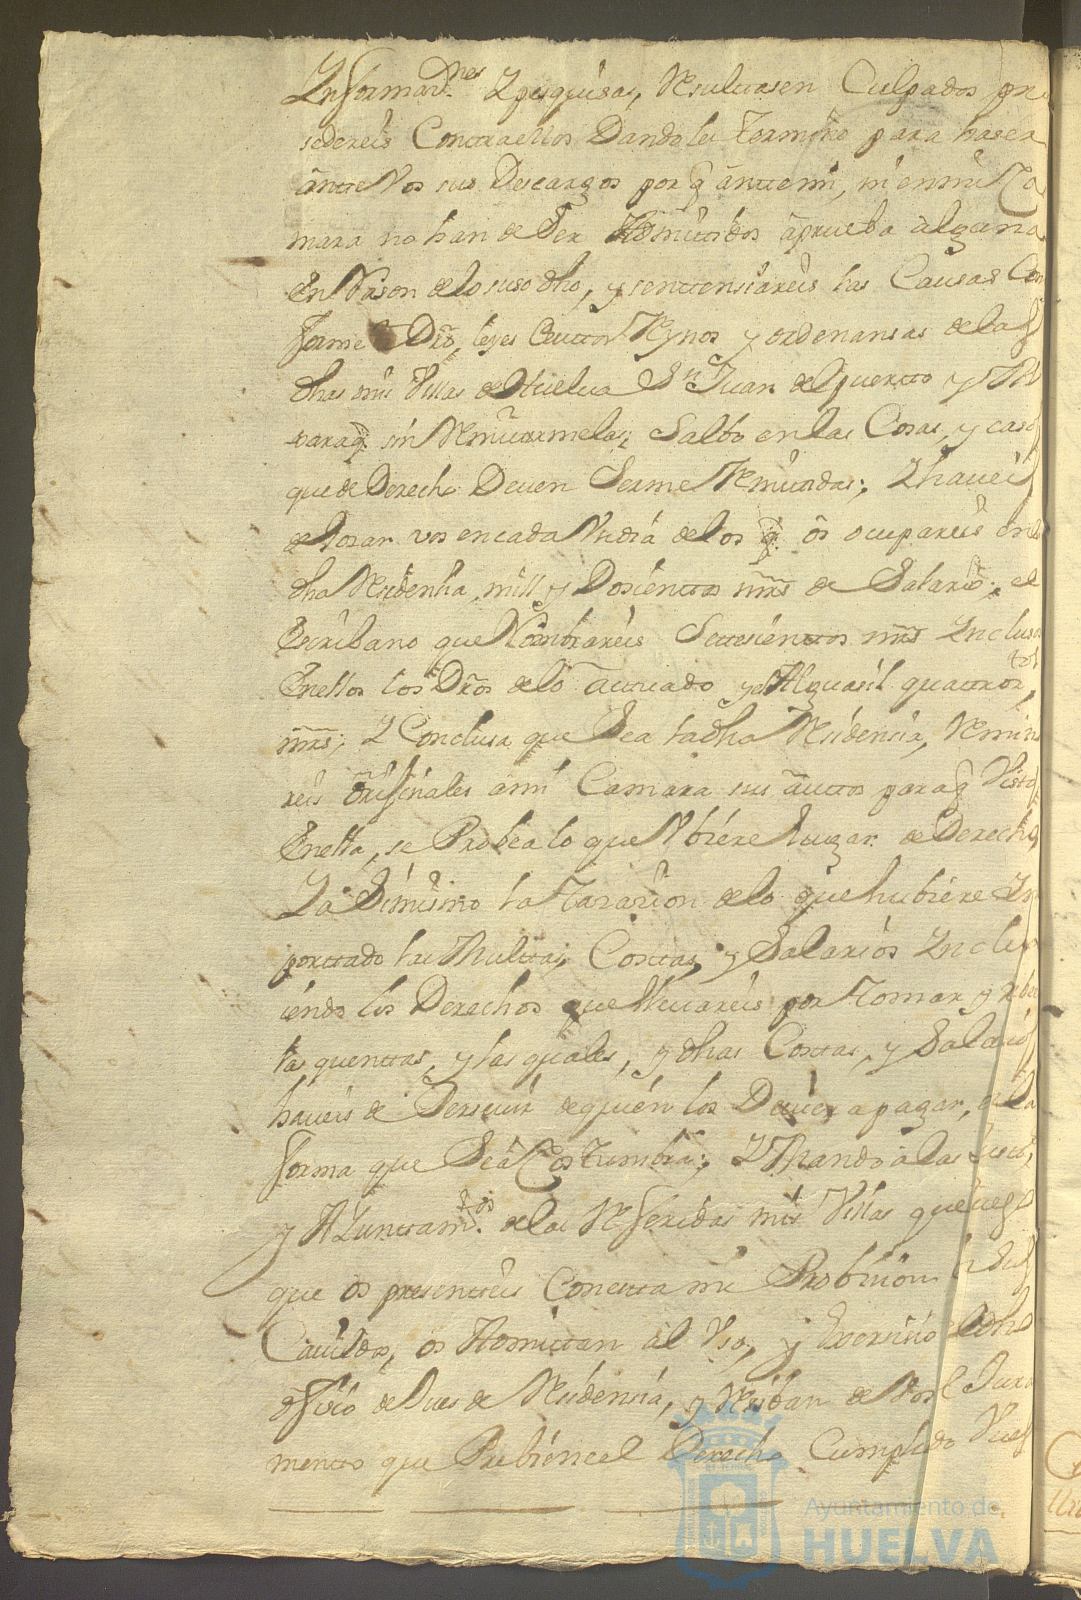 Informaz.nes Ypesquisas, Resultasen Culpados pro
sedereis Contraellos Dandoles Termino para haser
ante Vos sus Descargos por q antemi, ni enmi Ca
mara no han de Ser Admitidos aprueba alguna
En Rason de lo suso dho, y sentensiareis las Causas Con
forme a Dro, leyes destos Reynos y ordenansas de las
dhas mis Villas de Huelva Sn Juan del puerto y
paraq sin Remitirmelas; Salbo en las Cosas, y casos
que de Derecho Deven Serme Remitidas; Y haveis
de llevar vos encada Undia de los q. os ocupareis en la
dha Residensia, mill y Dosientos mrs de Salario; el
Escribano que Nombrareis Setesientos mrs Inclusos
Enellos los Dros de lo autuado y el Alguasil quatros.tos
mrs; Y Conclusa que Sea la dha Residensia, Remiti
reis orijinales ami Camara sus autos paraq Vistos
Enella, se Probea lo que Ubiere Lugar de Derecho
Ya Simismo la Tasasion de lo que hubiere Im
porttado las Multtas, Costtas, y Salarios Inclu
iendo los Derechos que llevareis por Tomar y rebeer
las quenttas, y las quales, y dhas Costtas, y Salarios
haveis de Persevir de quien los Deviere apagar, en la
forma que Sea Costumbre; Y Mando a las Justs,
y Ayunttam.tos de las Referidas mis Villas que luego
que os presenteis Conestta mi Probision en sus
Cavildos, os Admittan al Uso, y Exersisio del dho
ofisio de Jues de Residensia, y Resiban de Vos el Jura
mento que Prebiene el Derecho Cumplido
Ayuntamiento de
HUELVA